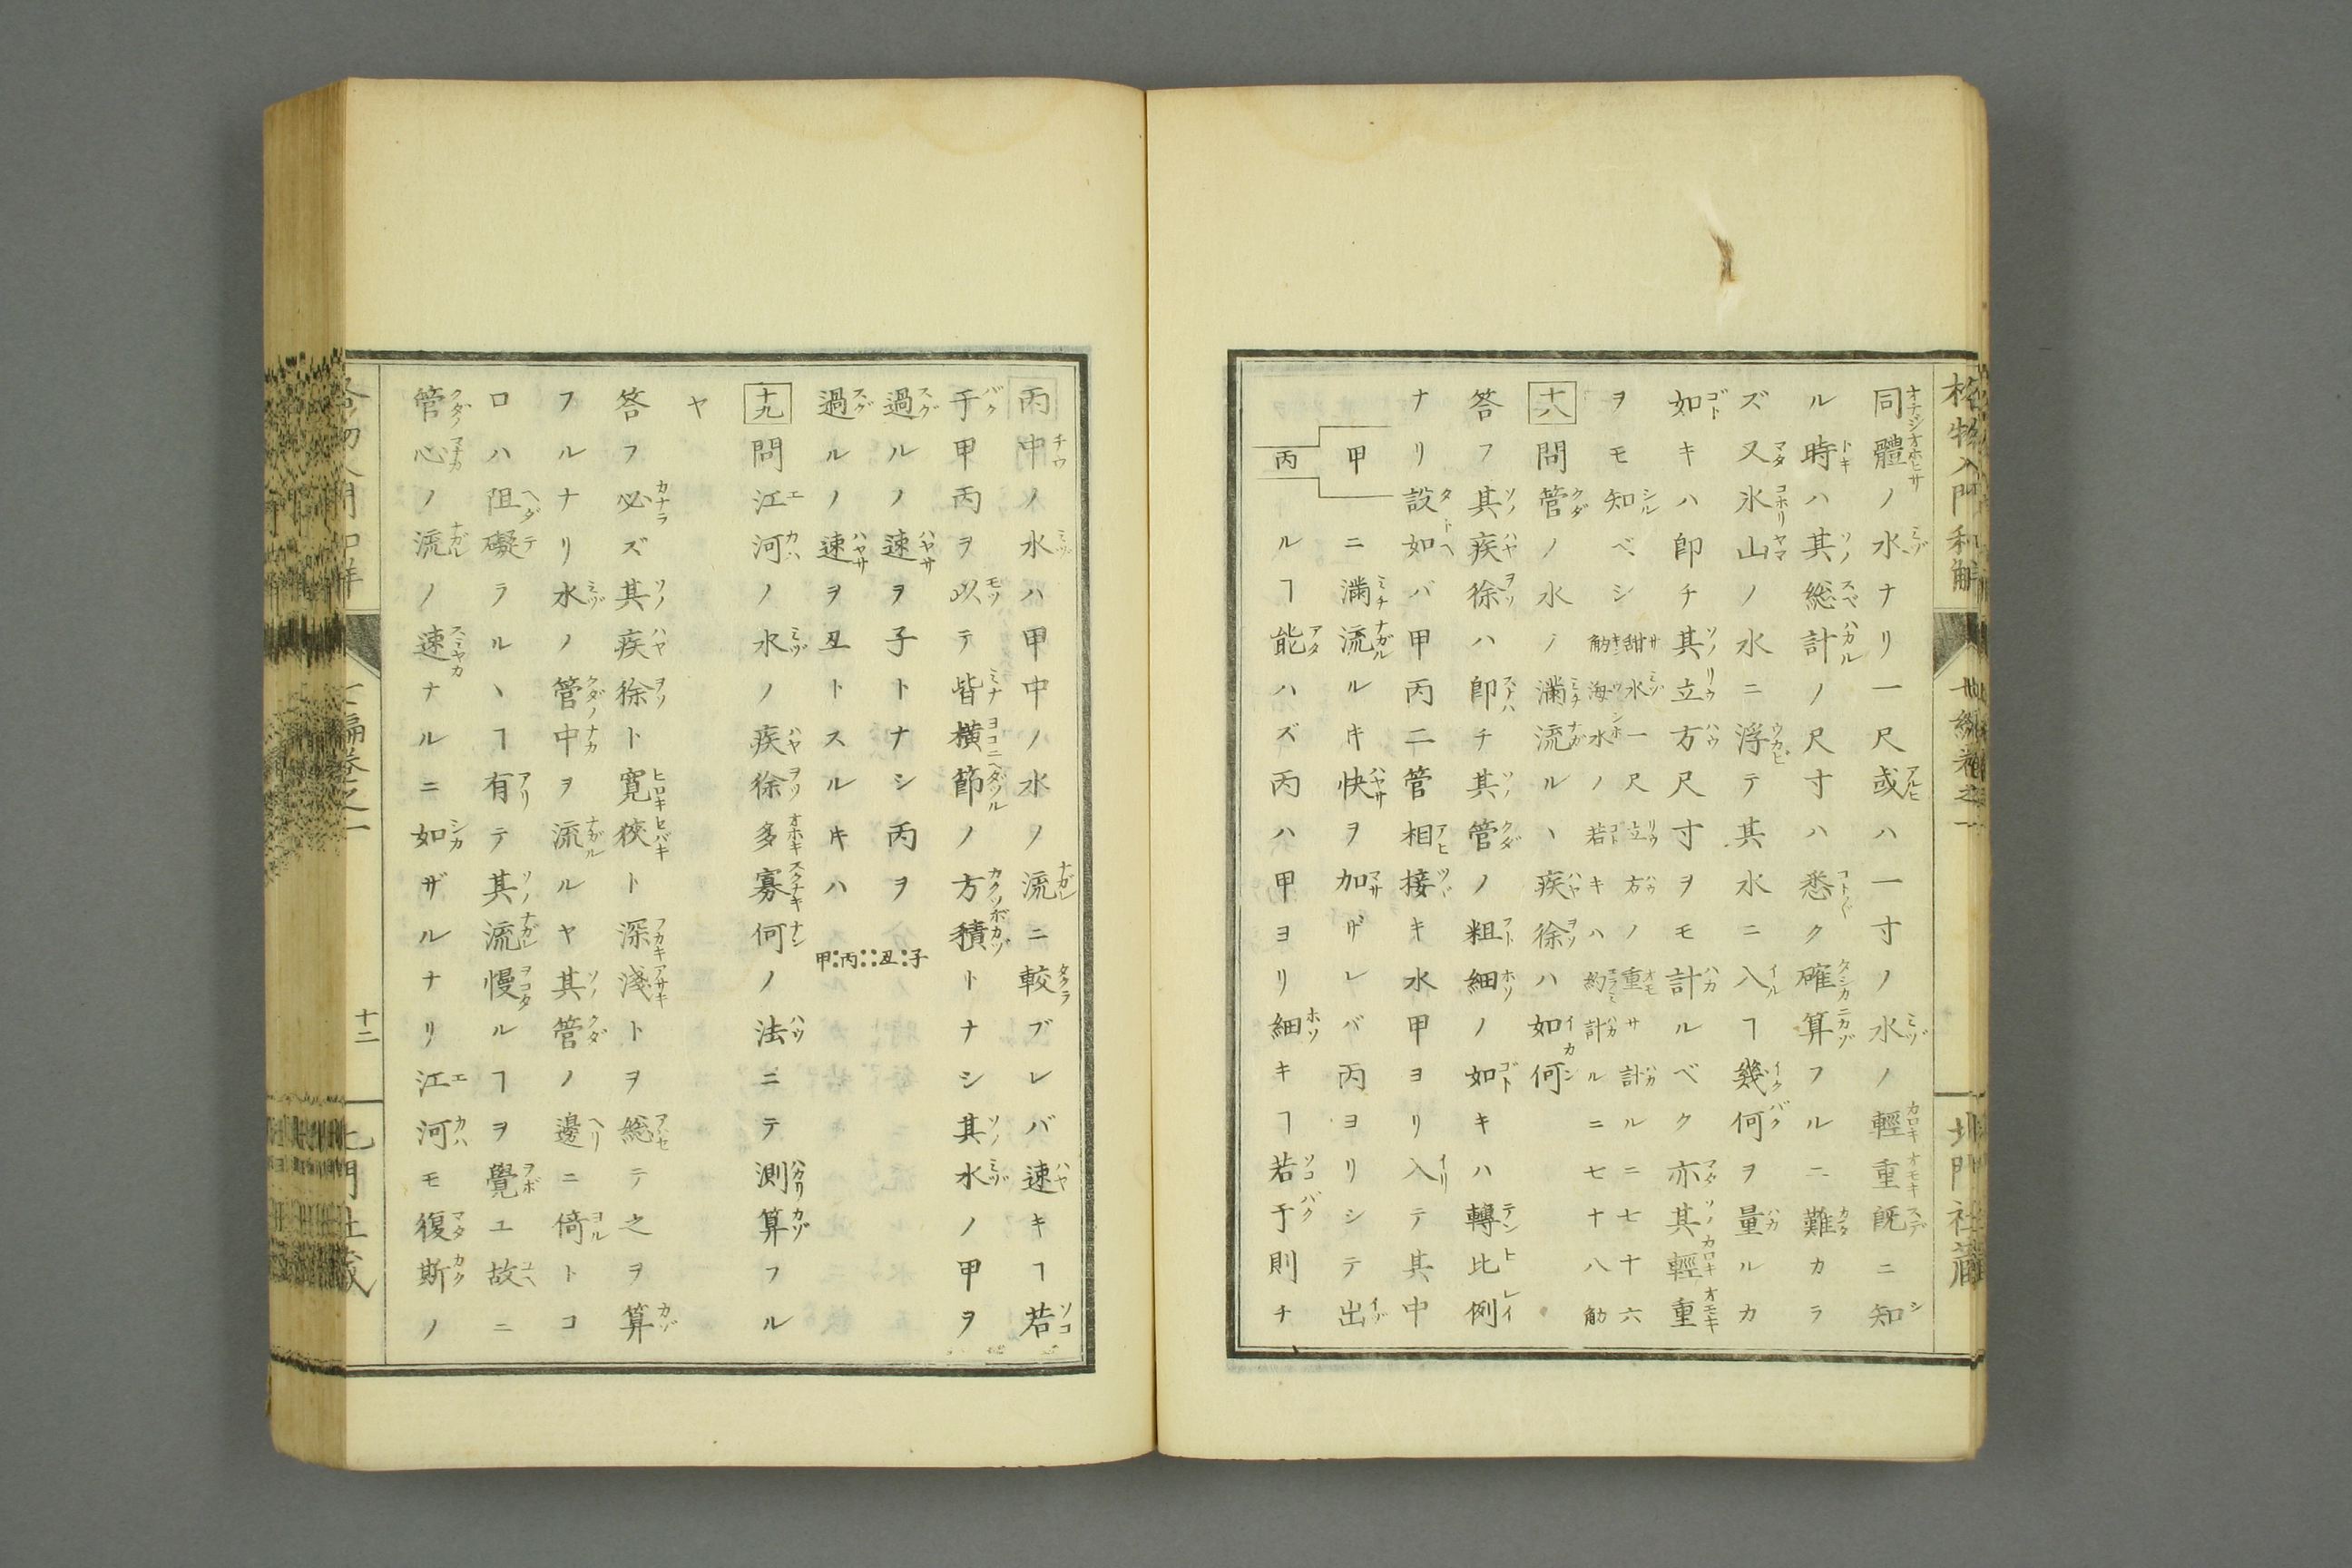 同體ノ水ナリ一尺或ハ一寸ノ水ノ輕重既ニ知
ル時ハ其総計ノ尺寸ハ悉ク確算フルニ難カラ
ズ又氷山ノ水ニ浮テ其水ニ入ヿ幾何ヲ量ルカ
如キハ卽チ其立方尺寸ヲモ計ルベク亦其輕重
ヲモ知ベシ
甜水一尺立方ノ重サ計ルニ七十六
觔海水ノ若キハ約計ルニ七十八觔
十八 問管ノ水ノ滿流ルヽ疾徐ハ如何
答フ其疾徐ハ卽チ其管ノ粗細ノ如キハ轉比例
ナリ設如バ甲丙二管相接キ水甲ヨリ入テ其中
甲
ニ滿流ルキ快ヲ加ザレバ丙ヨリシテ出
丙
ルヿ能ハズ丙ハ甲ヨリ細キヿ若干則チ
丙中ノ水ハ甲中ノ水ノ流ニ較ブレバ速キヿ若
干甲丙ヲ以テ皆橫節ノ方積トナシ其水ノ甲ヲ
過ルノ速ヲ子トナシ丙ヲ
過ルノ速ヲ丑トスルキハ
甲:丙::丑:子
十九 問江河ノ水ノ疾徐多寡何ノ法ニテ測算フル
ヤ
答フ必ズ其疾徐ト寬狹ト深淺トヲ総テ之ヲ算
フルナリ水ノ管中ヲ流ルヤ其管ノ邊ニ倚トコ
ロハ阻礙ラルヽヿ有テ其流慢ルヿヲ覺ユ故ニ
管心ノ流ノ速ナルニ如ザルナリ江河モ復斯ノ
十二